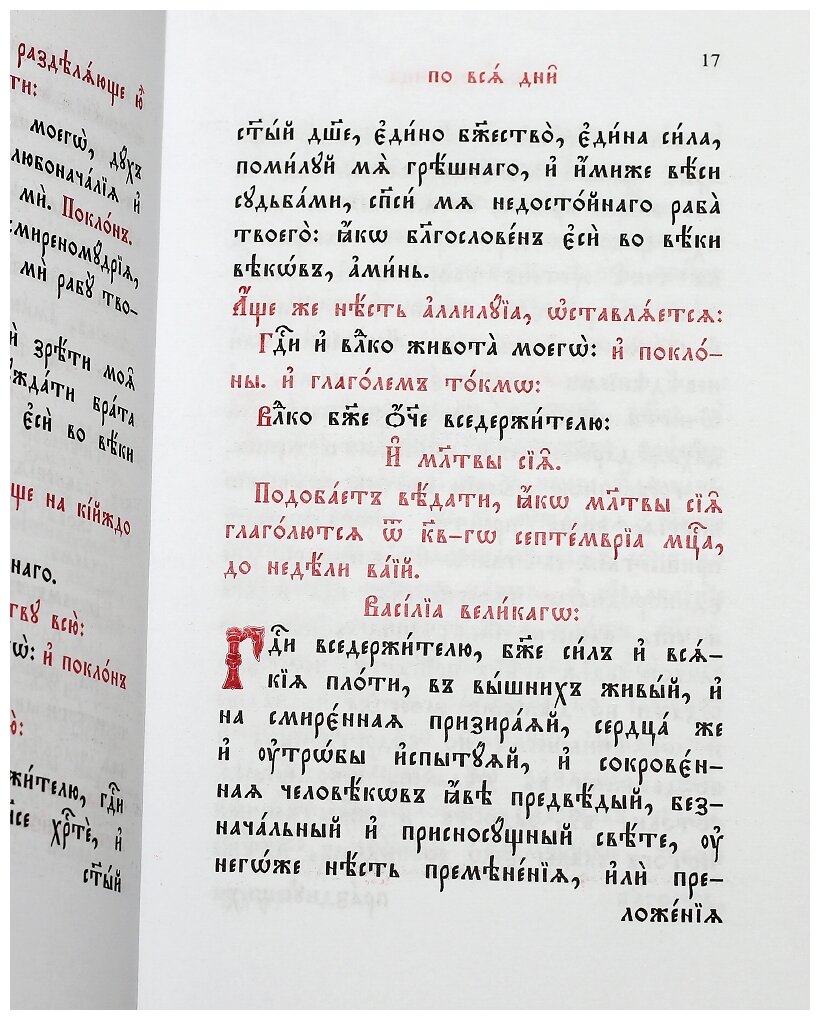 раздѣлѧ́юще ю҆̀
ти:
моегѡ̀, дꙋ́хъ
любонача́лїѧ и҆
мѝ. Покло́нъ.
смиреномꙋ́дрїѧ,
мѝ рабꙋ̀ тво-
зрѣ́ти моѧ̑
жда́ти бра́та
є҆сѝ во вѣ́ки
ще на кі́йждо
наго.
твꙋ̀ всю̀:
ѡ̀: и҆ покло́нъ
ю̀:
жи́телю, гд҇и
їсе хрⷭ҇тѐ, и҆
ст҃ы́й
17
по всѧ́ дни̑
ст҃ы́й дш҃е, є҆ди́но бжⷭ҇ество̀, є҆ди́на си́ла,
поми́лꙋй мѧ̀ грѣ́шнаго, и҆ и҆́миже вѣ́си
сꙋдьба́ми, сп҃си́ мѧ недосто́йнаго раба̀
твоегѡ̀: ꙗ҆́кѡ бл҃гослове́нъ є҆сѝ во вѣ́ки
вѣкѡ́въ, а҆ми́нь.
А҆́ще же нѣ́сть а҆ллилꙋ́їа, ѡ҆ставлѧ́етсѧ:
Гдⷭ҇и и҆ влⷣко живота̀ моегѡ̀: и҆ покло́-
ны. и҆ глаго́лемъ то́кмѡ:
Влⷣко бж҃е ѻ҆́ч҃е вседержи́телю:
И҆ мл҃твы сїѧ̑.
Подоба́етъ вѣ́дати, ꙗ҆́кѡ мл҃твы сїѧ̑
глаго́лютсѧ ѿ к҃в-гѡ септе́мврїа мцⷭ҇а,
до недѣ́ли ва́їй.
Васі́лїа вели́кагѡ:
Гдⷭ҇и вседержи́телю, бж҃е си́лъ и҆ всѧ́-
кїѧ пло́ти, въ вы́шнихъ живы́й, и҆
на смире́ннаѧ призира́ѧй, сердца́ же
и҆ ᲂу҆трѡ́бы и҆спытꙋ́ѧй, и҆ сокрове́н-
наѧ человѣ́кѡвъ ꙗ҆́вѣ предвѣ́дый, без-
нача́льный и҆ присносꙋ́щный свѣ́те, ᲂу҆
негѡ́же нѣ́сть премѣне́нїѧ, и҆лѝ пре-
ложе́нїѧ